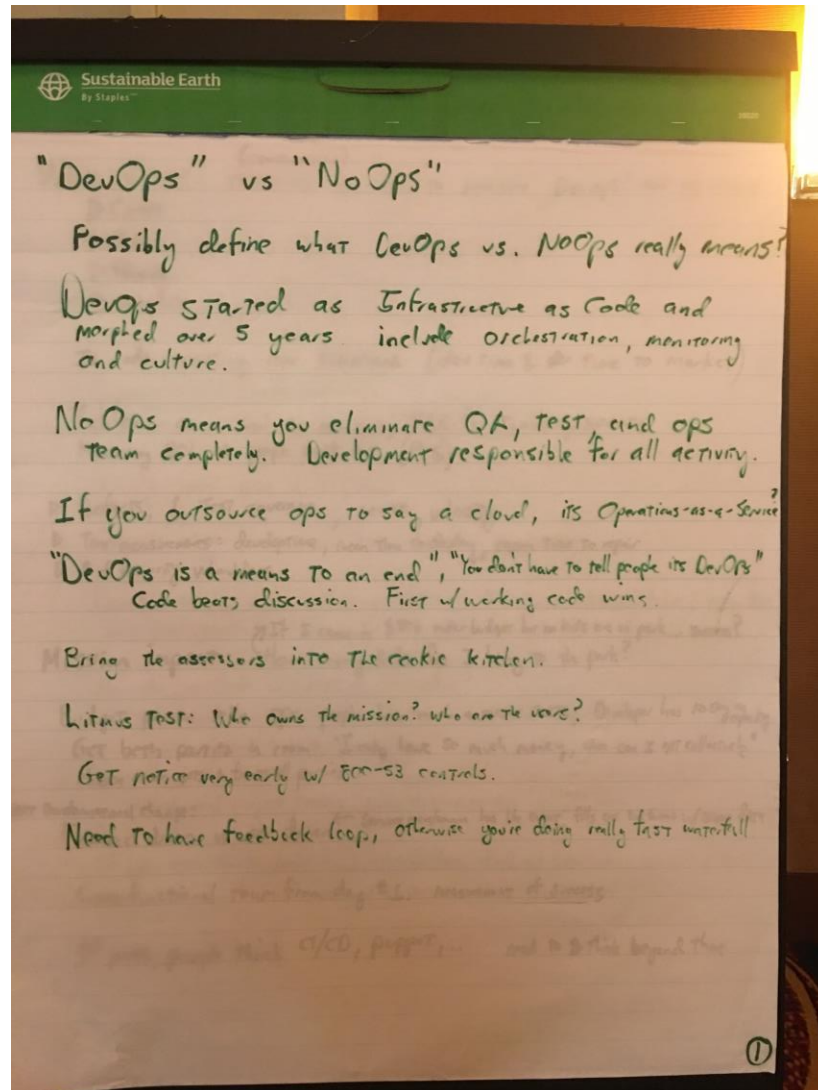 Sustainable Earth
By Staples™
"DevOps" vs "NoOps"
Possibly define what DevOps vs. NoOps really means?
Devops started as Infrastructure as Code and
morphed over 5 years include orchestration, monitoring
and culture.
No Ops means you eliminate QA, test, and ops
team completely. Development responsible for all activity.
If you outsource ops to say a cloud, its Operations-as-a-Service?
"DevOps is a means to an end", "You don't have to tell people its DevOps"
Code beats discussion. First w/ working code wins.
Bring the assessors into the cookie kitchen.
Litmus Test: Who owns the mission? Who are the users?
Get notice very early w/ 800-53 controls.
Need to have feedback loop, otherwise you're doing really fast waterfall
1